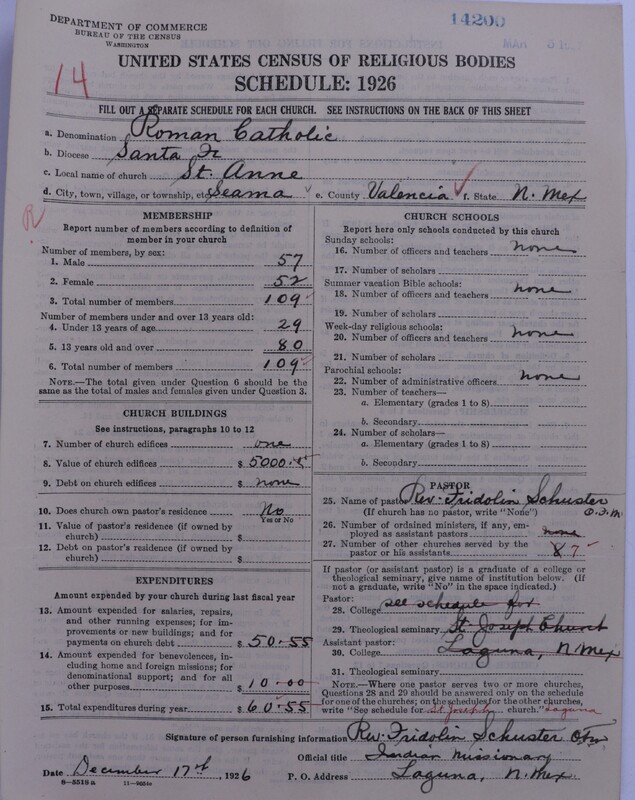 DEPARTMENT OF COMMERCE
BUREAU OF THE CENSUS
WASHINGTON
14200
UNITED STATES CENSUS OF RELIGIOUS BODIES
SCHEDULE: 1926
14
FILL OUT A SEPARATE SCHEDULE FOR EACH CHURCH. SEE INSTRUCTIONS ON THE BACK OF THIS SHEET
a. Denomination Roman Catholic
b. Diocese Santa Fe
c. Local name of church St. Anne
d. City, town, village, or township, etc. Seama e. County Valencia f. State N. Mex
R
MEMBERSHIP
Report number of members according to definition of
member in your church
Number of members, by sex:
1. Male 57
2. Female 52
3. Total number of members 109
Number of members under and over 13 years old:
4. Under 13 years of age 29
5. 13 years old and over 80
6. Total number of members 109
NOTE.—The total given under Question 6 should be
same as the total of males and females given under Question 3.
CHURCH BUILDINGS
See instructions, paragraphs 10 to 12
7. Number of church edifices one
8. Value of church edifices $ 5000.
9. Debt on church edifices $ none
10. Does church own pastor's residence No
Yes or No
11. Value of pastor's residence (if owned by
church) $
12. Debt on pastor's residence (if owned by
church) $
EXPENDITURES
Amount expended by your church during last fiscal year
13. Amount expended for salaries, repairs,
and other running expenses; for im-
provements or new buildings; and for
payments on church debt $ 50.55
14. Amount expended for benevolences, in-
cluding home and foreign missions; for
denominational support; and for all
other purposes $ 10.00
15. Total expenditures during year $ 60.55
CHURCH SCHOOLS
Report here only schools conducted by this church
Sunday schools:
16. Number of officers and teachers none
17. Number of scholars
Summer vacation Bible schools:
18. Number of officers and teachers none
19. Number of scholars
Week-day religious schools:
20. Number of officers and teachers none
21. Number of scholars
Parochial schools:
22. Number of administrative officers none
23. Number of teachers—
a. Elementary (grades 1 to 8)
b. Secondary
24. Number of scholars—
a. Elementary (grades 1 to 8)
b. Secondary
PASTOR
25. Name of pastor Rev. Fridolin Schuster
(If church has no pastor, write "None") O.F.M.
26. Number of ordained ministers, if any, em-
ployed as assistant pastors none
27. Number of other churches served by the
pastor or his assistants 8 7
If pastor (or assistant pastor) is a graduate of a college or
theological seminary, give name of institution below. (If
not a graduate, write "No" in the space indicated.)
Pastor:
28. College see schedule for
29. Theological seminary St Joseph Church
Assistant pastor:
30. College Laguna, N Mex
31. Theological seminary
NOTE.—Where one pastor serves two or more churches,
Questions 28 and 29 should be answered only on the schedule
for one of the churches; on the schedules for the other churches,
write "See schedule for St Joseph church." Laguna
Signature of person furnishing information Rev. Fridolin Schuster Ofm
Official title Indian Missionary
Date December 17th, 1926 P. O. Address Laguna, N. Mex.
8—5518a 11—9034